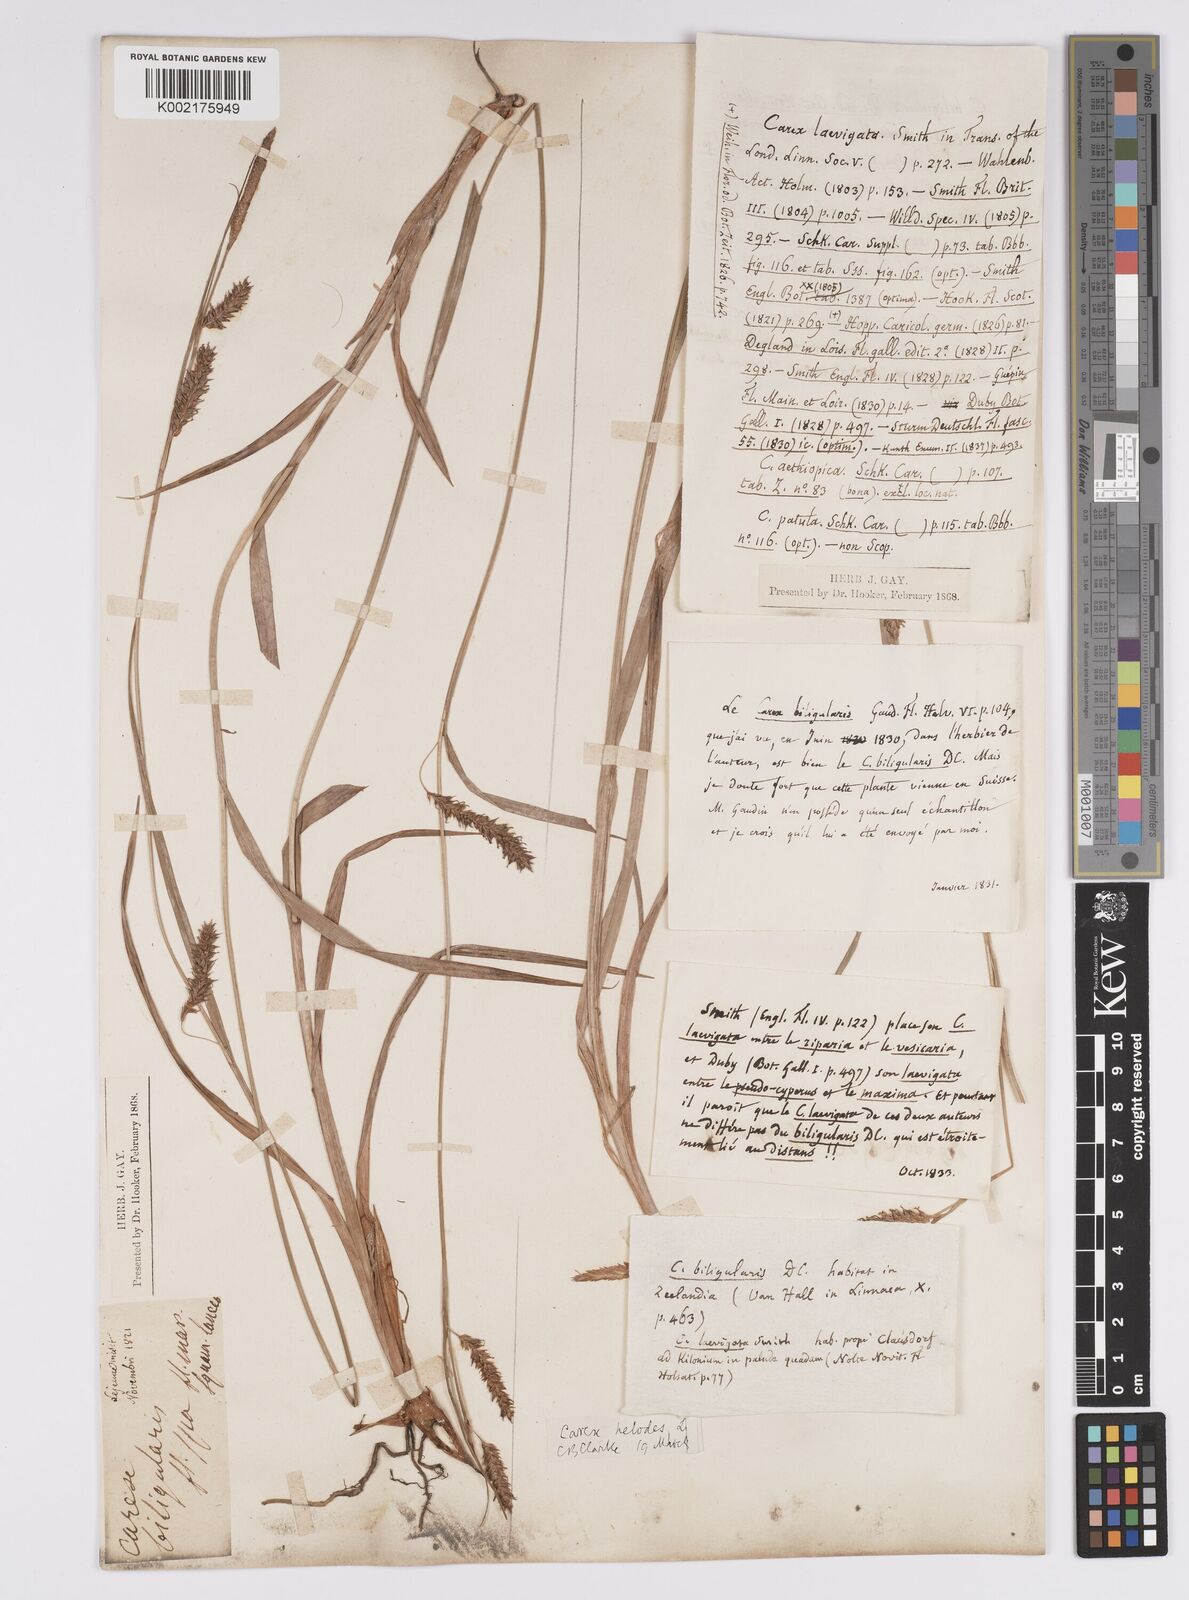 ROYAL BOTANIC GARDENS KEW
K002175949
(+) Weih. in Flor. od. Bot. Zeit. 1826. p. 742.
Carex laevigata. Smith in Trans. of the
Lond. Linn. Soc. V. ( ) p. 272. — Wahlenb.
Act. Holm. (1803) p. 153. — Smith Fl. Brit.
III. (1804) p. 1005. — Willd. Spec. IV. (1805) p.
295. — Schk. Car. Suppl. ( ) p. 73. tab. Bbb.
fig. 116. et tab. Sss. fig. 162. (opt.). — Smith
Engl. Bot. XX (1805) tab. 1387 (optima). — Hook. Fl. Scot.
(1821) p. 269. (+) — Hopp. Caricol. germ. (1826) p. 81. —
Degland in Lois. Fl. gall. edit. 2.a (1828) II. p.
298. — Smith Engl. Fl. IV. (1828) p. 122. — Guépin
Fl. Main. et Loir. (1830) p. 14. — Duby Bot.
Gall. I. (1828) p. 497. — Sturm Deutschl. Fl. fasc.
55. (1830) ic. (optim.). — Kunth Enum. II. (1837) p. 493.
C. aethiopica. Schk. Car. ( ) p. 107.
tab. Z. no. 83 (bona). excl. loc. nat.
C. patula. Schk. Car. ( ) p. 115. tab. Bbb.
no. 116. (opt.). — non Scop.
HERB. J. GAY.
Presented by Dr. Hooker, February 1868.
Le Carex biligularis Gaud. Fl. Helv. VI. p. 104,
que j'ai vu, en Juin 1830, dans l'herbier de
l'auteur, est bien le C. biligularis DC. Mais
je doute fort que cette plante vienne en Suisse.
M. Gaudin n'en possède qu'un seul échantillon
et je crois qu'il lui a été envoyé par moi.
Janvier 1831.
Smith (Engl. Fl. IV. p. 122) place son C.
laevigata entre le riparia et le vesicaria,
et Duby (Bot. Gall. I. p. 497) son laevigata
entre le pseudo-cyperus et le maxima. Et pourtant
il paroit que le C. laevigata de ces deux auteurs
ne diffère pas du biligularis DC. qui est étroite-
ment lié au distans !!
Oct. 1833.
C. biligularis DC. habitat in
Zeelandia (Van Hall in Linnaea, X.
p. 463)
C. laevigata Smith hab. prope Clausdorf
ad Kilonium in palude quadam (Nolte Novit. Fl.
Holsat. p. 77)
Carex helodes,
CBClarke 19 March
HERB. J. GAY.
Presented by Dr. Hooker, February 1868.
Lejeune misit
Novembri 1821
Carex
biligularis
fl. mas.
squam. lanceo
inches
centimetres
Don Williams
M001007
Royal Botanic Gardens
Kew
0 1 2 3 4 5 6 7 8 9 10
cm